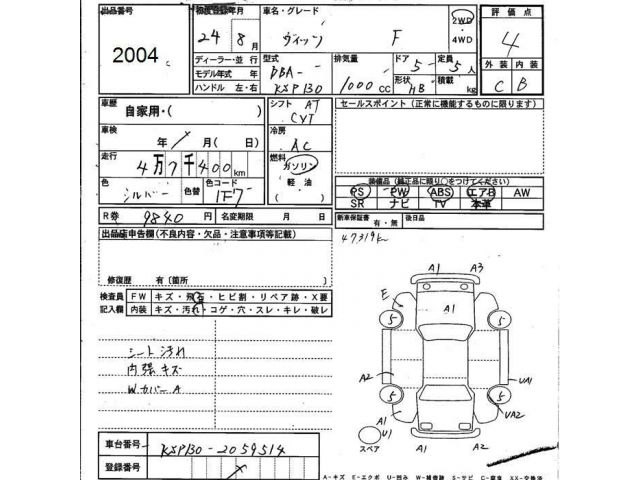 出品番号 初度登録年月 車名・グレード 2WD 評価点
2004 24年 8月 ヴィッツ F 4WD 4
ディーラー・並行 型式 排気量 ドア 定員 外装 内装
モデル年式 年 DBA- 1000cc 5 5人 C B
ハンドル 左・右 KSP130 形状 HB 積載 kg
車歴 自家用・( ) シフト AT セールスポイント(正常に機能するものに限ります)
CVT
車検 年 月( 日) 冷房
AC
走行 4万7千400km 燃料 ガソリン
軽油 装備品(純正品に限り○をつけてください)
色 シルバー 色替 色コード 1F7 ( ) PS PW ABS エアB AW
SR ナビ TV 本革
R券 9840円 名変期限 月 日 新車保証書 有・無 後日品
出品店申告欄(不良内容・欠品・注意事項等記載) 47319km
修復歴 有〔箇所 〕
検査員 FW キズ・飛石・ヒビ割・リペア跡・X要
記入欄 内装 キズ・汚れ・コゲ・穴・スレ・キレ・破レ
シート汚れ
内張キズ
W.カバーA
A1 A3
E A1
5 5
A2 UA1
5 5
A1 UA2
U1
スペア A1 A2
車台番号 KSP130-2059514
登録番号
A-キズ E-エクボ U-凹み W-補修跡 S-サビ C-腐食 XX-交換済